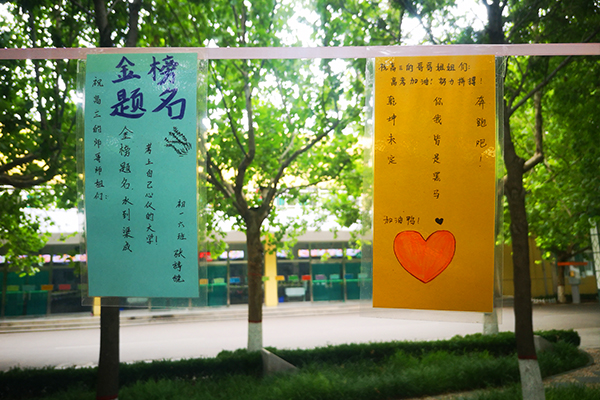 金榜
题名
祝高三的师哥师姐们:
金榜题名水到渠成
考上自己心仪的大学!
初一六班
祝高三的哥哥姐姐们:
高考加油!努力拼搏!
乾坤未定
你我皆是黑马
奔跑吧!
加油鸭!